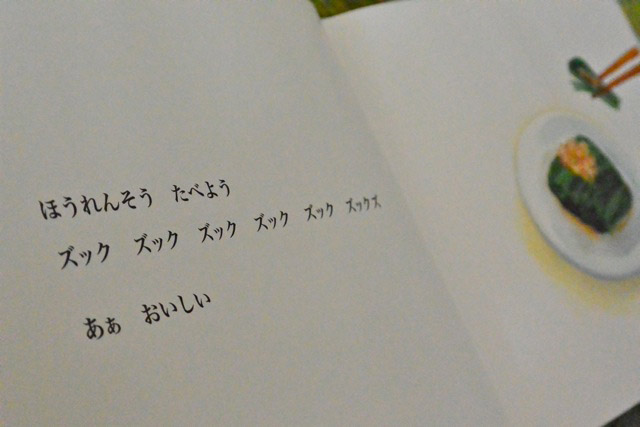 ほうれんそう たべよう
ズック ズック ズック ズック ズック ズックズ
あぁ おいしい